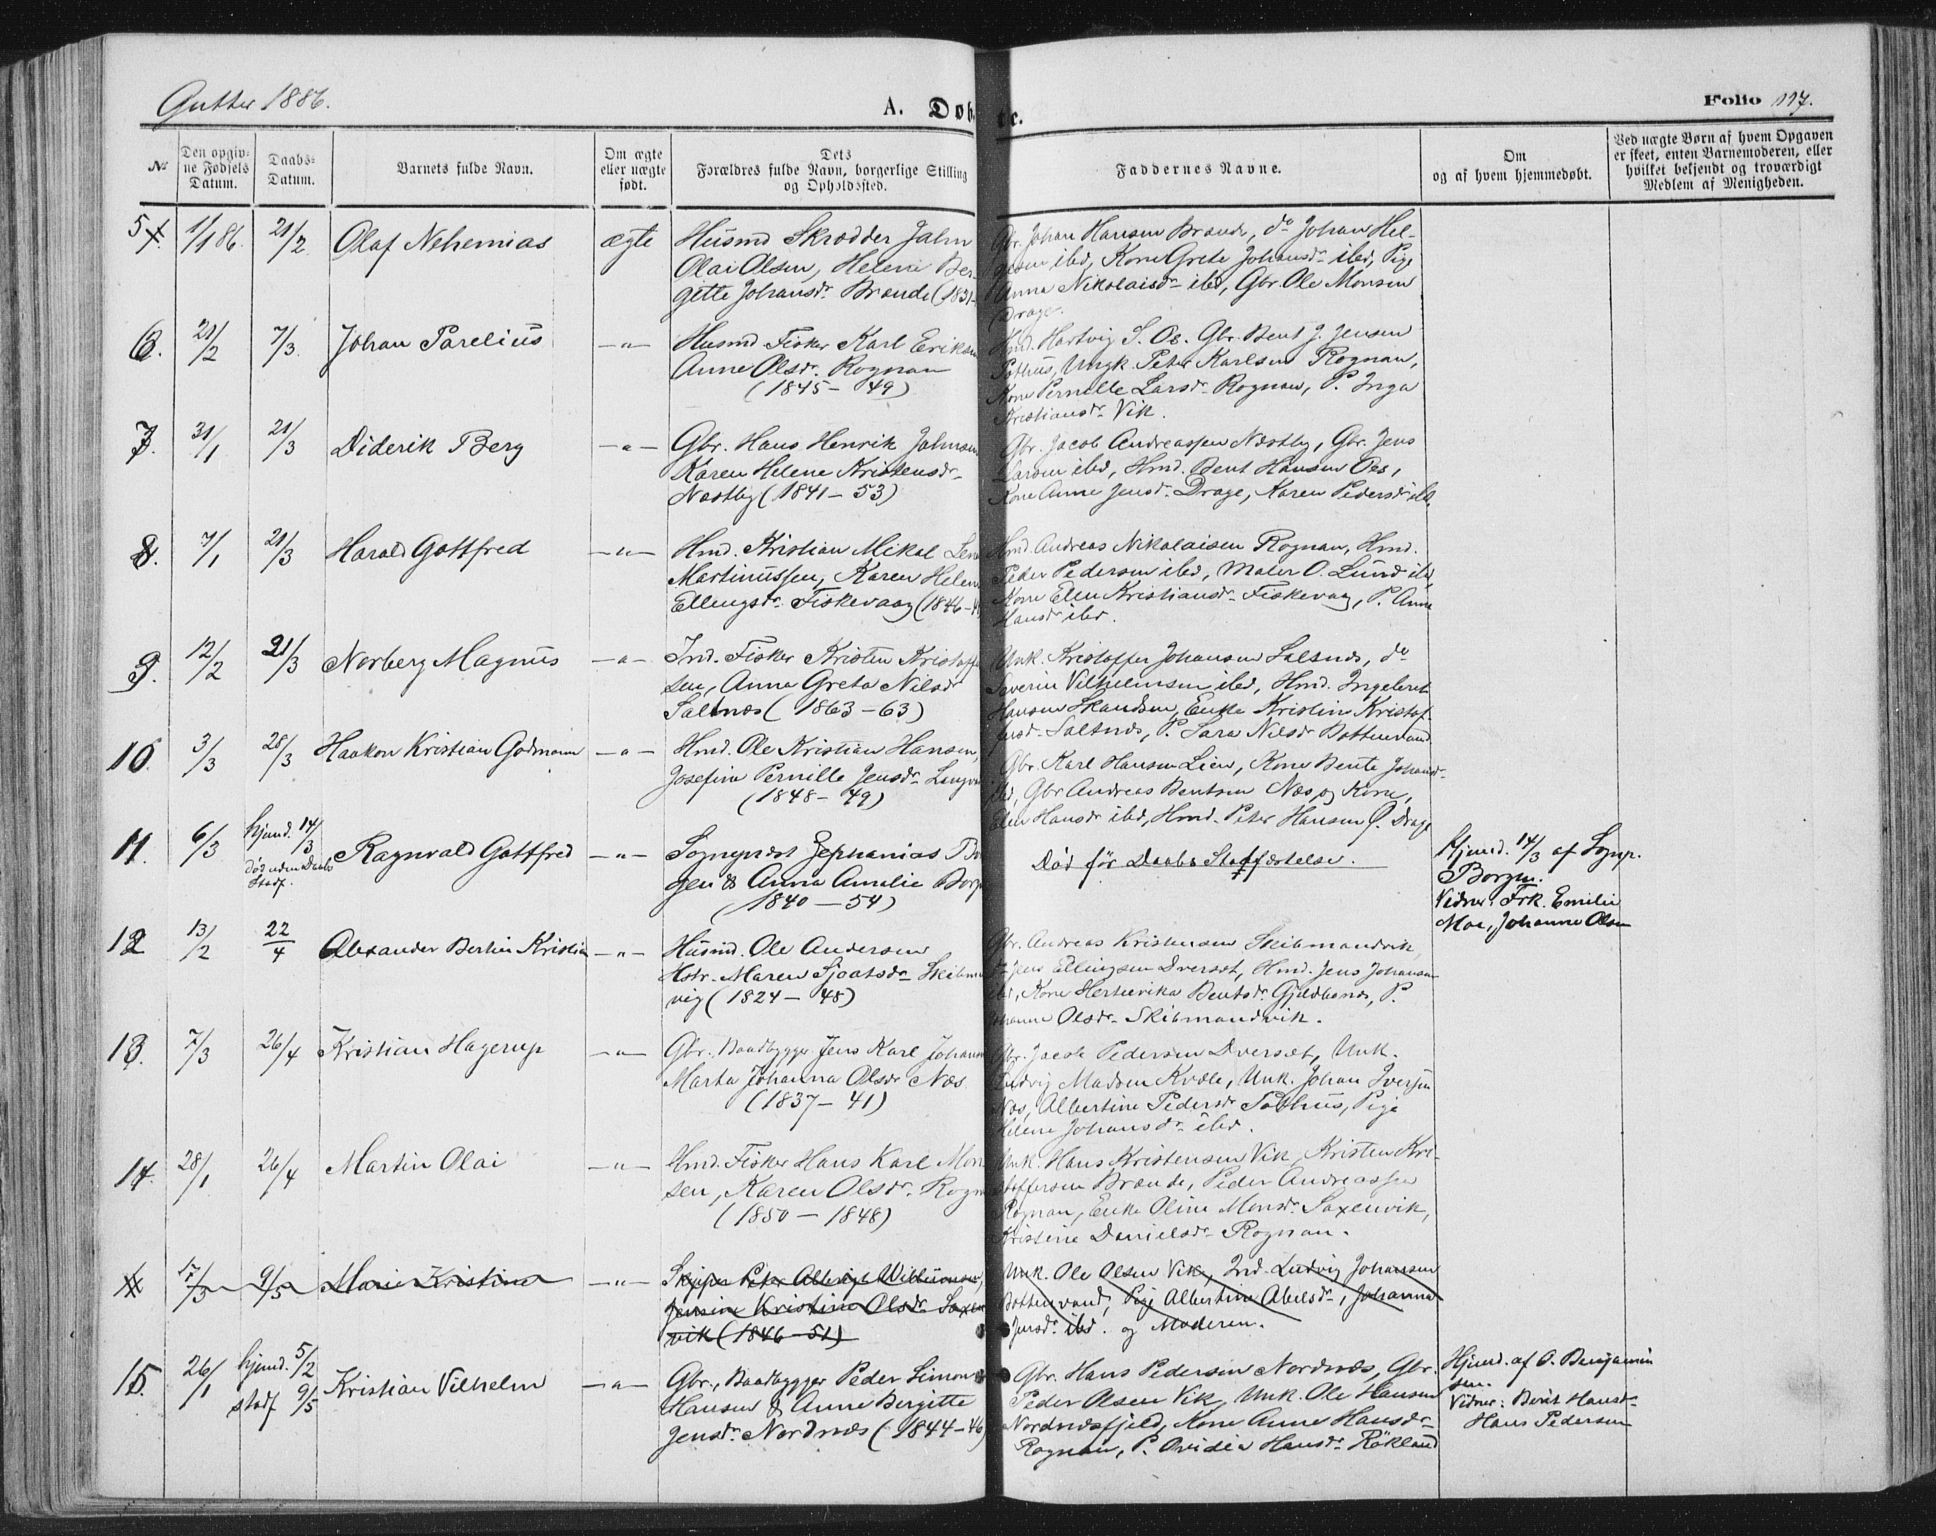 Gutter 1886.
A. Døbte.
Folio 117.
No
Den opgivne Fødsels Datum.
Daabs-Datum.
Barnets fulde Navn.
Om ægte eller uægte født.
Dets Forældres fulde Navn, borgerlige Stilling og Opholdssted.
Faddernes Navne.
Om og af hvem hjemmedøbt.
Ved uægte Børn af hvem Opgaven er skeet, enten Barnemoderen, eller hvilket bekjendt og troværdigt Medlem af Menigheden.
5. 1/1 86. 21/2 Olaf Nehemias ægte
Husmd Skrædder Jahn
Olai Olsen, Helene Ber-
gitte Johansdr Brænde (1831-
Gbr. Johan Hansen Brænde, do Johan Hel-
gesen ibd, Kone Grete Johansdr ibd, Pige
Anna Nikolaisdr ibd, Gbr. Ole Monsen
Drage
6. 21/2 7/3 Johan Parelius -"-
Husmd Fisker Karl Eriksen
Anne Olsdr. Rognan
(1845-49)
Hmd. Hartvig S. Os. Gbr. Bent J. Jensen
Pothus, Ungk. Peter Karlsen Rognan,
Kone Pernille Larsdr Rognan, P. Inga
Kristiansdr Vik.
7. 31/1 21/3 Diderik Berg -"-
Gbr. Hans Henrik Jahnsen
Karen Helene Kristensdr
Næstby (1841-53)
Gbr. Jacob Andreassen Næstby, Gbr. Jens
Larsen ibd, Hmd. Bent Hansen Os,
Kone Anne Jensdr. Drage, Karen Pedersdr ibd.
8. 7/1 21/3 Harald Gottfred -"-
Hmd. Kristian Mikal
Martinussen, Karen Helene
Ellingsdr. Fiskevaag (1846-
Hmd. Andreas Nikolaisen Rognan, Hmd.
Peder Pedersen ibd, Maler O. Lund ibd,
Kone Ellen Kristiansdr Fiskevaag, P. Anne
Hansdr ibd.
9. 12/2 21/3 Norberg Magnus -"-
Ind. Fisker Kristen Kristoffer-
sen, Anna Greta Nilsdr
Saltnæs (1863-63)
Unk. Kristoffer Johansen Saltnæs, do
Severin Vilhelmsen ibd, Hmd. Ingebret
Hansen Skandsen, Enke Kristin Kristof-
fersdr Saltnæs, P. Sara Nilsdr Bottenvand
10. 3/3 28/3 Haakon Kristian Godmann -"-
Hmd. Ole Kristian Hansen,
Josefine Pernille Jensdr
(1848-49)
Gbr. Karl Hansen Lien, Kone Bente Johansdr
ibd, Gbr Andreas Bentsen Næs og Kone,
Ellen Hansdr ibd, Hmd. Peter Hansen Ø. Drage
11. 6/3 hjemd. 14/3
død uden Daabs
Stadf.
Ragnvald Gottfred -"-
Sogneprest Zephanias Bor-
gen & Anna Amalie Borgen
(1840-54)
Død før Daabs Stadfæstelse.
Hjemd. 14/3 af Sognp.
Borgen.
Vidner: Frk. Emilie
Moe, Johanne Olsen
12 13/2 22/4 Alexander Bertin Kristian -"-
Husmd. Ole Andersen
Hstr. Maren Sjoatsdr Skibmand-
vig (1824-48)
Gbr. Andreas Kristensen Skibmandvik
Jens Ellingsen Dverset, Hmd. Jens Johansen
ibd, Kone Hertierika Bentsdr Gjeldbones, P.
Johanna Olsdr Skibmandvik.
13. 7/3 26/4 Kristian Hagerup -"-
Gbr. Baadbygger Jens Karl Johansen
Marta Johanna Olsdr Næs
(1837-41)
Gbr. Jacob Pedersen Dverset, Unk.
Ludvig Madsen Kvæle, Unk. Johan Iversen
Næs, Albertine Pedersdr Pothus, Pige
Helene Johansdr ibd.
14. 28/1 26/4 Martin Olai -"-
Hmd. Fisker Hans Karl Mon-
sen, Karen Olsdr. Rognan
(1850-1848)
Unk. Hans Kristensen Vik, Kristen Kri-
stoffersen Brænde, Peder Andreassen
Rognan, Enke Oline Monsdr Saxenvik,
Kristine Danielsdr Rognan.
17/3 9/5 Marie Kristine -"-
Skipper Peter Albrigt Willumsen,
Jensine Kristine Olsdr Saxen-
vik (1846-51)
Unk. Ole Olsen Vik, Ind. Ludvig Johansen
Bottenvand, Pige Albertine Abelsdr, Johanna
Jensdr ibd. og Moderen.
15. 26/1 hjemd. 5/2
stadf 9/5
Kristian Vilhelm -"-
Gbr., Baadbygger Peder Simon
Hansen & Anne Bergitte
Jensdr. Nordnæs (1844-46)
Gbr. Hans Pedersen Nordnæs, Gbr.
Peder Olsen Vik, Unk. Ole Hansen
Nordnæsfjeld, Kone Anne Hansdr
Rognan, P. Ovidia Hansdr Røkland
Hjemd. af O. Benjamin
sen.
Vidner: Berit Hansdr
Hans Pedersen